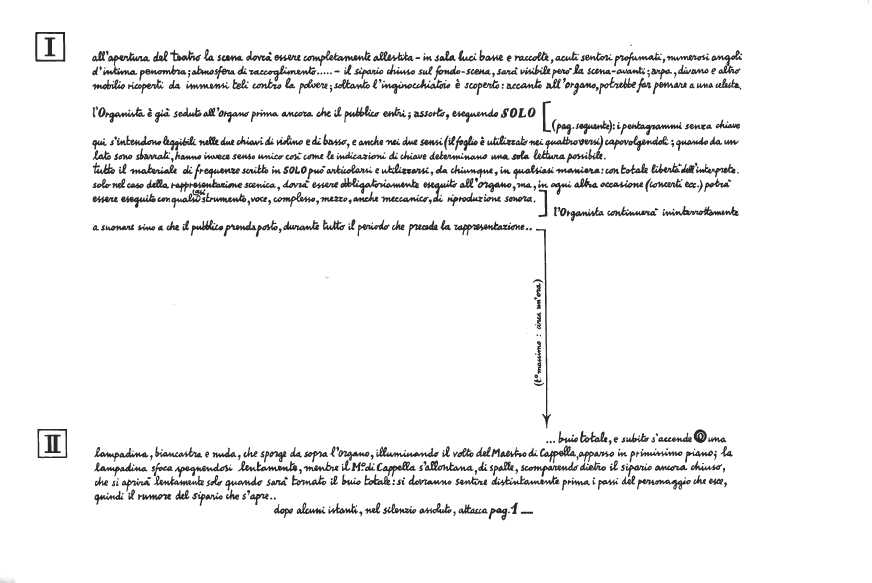 I
all'apertura del teatro la scena dovrà essere completamente allestita – in sala luci basse e raccolte, acuti sentori profumati, numerosi angoli
d'intima penombra; atmosfera di raccoglimento..... – il sipario chiuso sul fondo-scena, sarà visibile però la scena-avanti; arpa, divano e altro
mobilio ricoperti da immensi teli contro la polvere; soltanto l'inginocchiatoio è scoperto: accanto all'organo, potrebbe far pensare a una celesta.
l'Organista è già seduto all'organo prima ancora che il pubblico entri; assorto, eseguendo SOLO
(pag. seguente): i pentagrammi senza chiave
qui s'intendono leggibili nelle due chiavi di violino e di basso, e anche nei due sensi (il foglio è utilizzato nei quattro versi) capovolgendoli; quando da un
lato sono sbarrati, hanno invece senso unico così come le indicazioni di chiave determinano una sola lettura possibile.
tutto il materiale di frequenze scritto in SOLO può articolarsi e utilizzarsi, da chiunque, in qualsiasi maniera: con totale libertà dell'interprete.
solo nel caso della rappresentazione scenica, dovrà essere obbligatoriamente eseguito all'organo, ma, in ogni altra occasione (concerti ecc.) potrà
essere eseguito con qualsiasi strumento, voce, complesso, mezzo, anche meccanico, di riproduzione sonora.
l'Organista continuerà ininterrottamente
a suonare sino a che il pubblico prenda posto, durante tutto il periodo che precede la rappresentazione..
(to massimo : circa un'ora)
II
... buio totale, e subito s'accende una
lampadina, biancastra e nuda, che sporge da sopra l'organo, illuminando il volto del Maestro di Cappella, apparso in primissimo piano; la
lampadina sfoca spegnendosi lentamente, mentre il Mo di Cappella s'allontana, di spalle, scomparendo dietro il sipario ancora chiuso,
che si aprirà lentamente solo quando sarà tornato il buio totale: si dovranno sentire distintamente prima i passi del personaggio che esce,
quindi il rumore del sipario che s'apre..
dopo alcuni istanti, nel silenzio assoluto, attacca pag. 1 .....